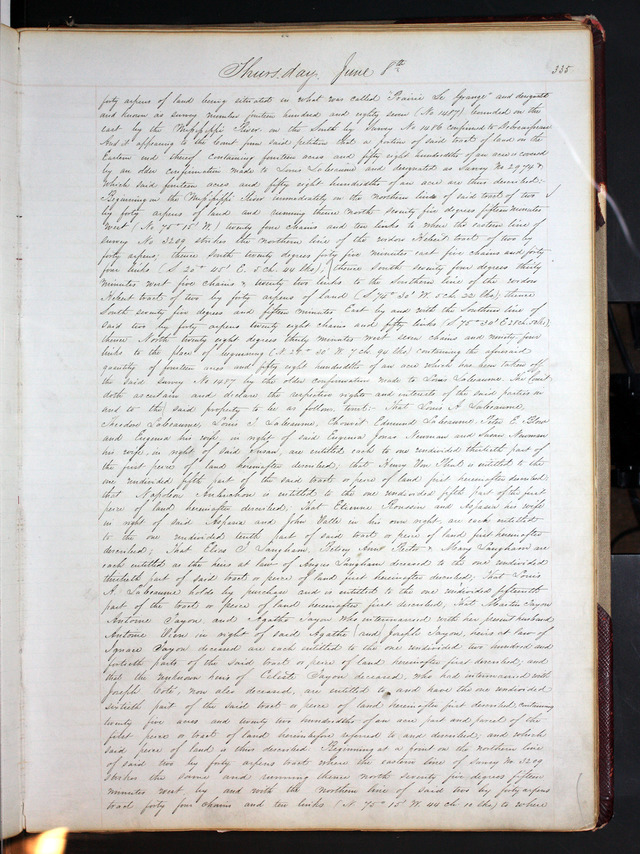 Thursday, June 8th 335
forty arpens of land being situated in what was called "Prairie Le Grange" and designated
and known as survey number fourteen hundred and eighty seven (No 1487) bounded on the
east by the Mississippi River on the South by Survey No 1486 confirmed to
And it appearing to the Court from said petition that a portion of said tract of land on the
Eastern end thereof containing fourteen acres and fifty eight hundredths of an acre is covered
by an older confirmation made to Louis Labeaume and designated as Survey No 2974 &
which said fourteen acres and fifty eight hundredths of an acre are thus described:
Beginning on the Mississippi River immediately on the northern line of said tract of two
by forty arpens of land and running thence North seventy five degrees fifteen minutes
West (N. 75° 15' W.) twenty four chains and ten links to where the eastern line of
survey No 3209 strikes the northern line of the widow Hebert tract of two by
forty arpens; thence South twenty degrees forty five minutes east five chains and forty
four links (S 20° 45' E. 5 ch. 44 lks); thence South seventy four degrees thirty
minutes west five chains & twenty two links to the Southern line of the widow
Hebert tract of two by forty arpens of land (S 74° 30' W. 5 ch. 22 lks); thence
South seventy five degrees and fifteen minutes East by and with the Southern line of
said two by forty arpens twenty eight chains and fifty links
thence North twenty eight degrees thirty minutes west seven chains and ninety four
links to the place of beginning (N. 28° 30' W. 7 ch. 94 lks) containing the aforesaid
quantity of fourteen acres and fifty eight hundredths of an acre which has been taken off
the said survey No 1487 by the older confirmation made to Louis Labeaume. The Court
doth ascertain and declare the respective rights and interests of the said parties in
and to the said property to be as follows, towit: That Louis A. Labeaume,
Theodore Labeaume, Louis T. Labeaume, Edmund Labeaume, Peter E. Blow
and Eugenia his wife, in right of said Eugenia Jonas Newman and Susan Newman
his wife, in right of said Susan, are entitled each to one undivided thirtieth part of
the first piece of land hereinafter described; that Henry Von Phul is entitled to the
one undivided fifth part of the said tract or piece of land first hereinafter described;
that Napoleon is entitled to the one undivided fifth part of the first
piece of land hereinafter described. That Etienne and Aspasia his wife
in right of said Aspasia and John in his own right, are each entitled
to the one undivided tenth part of said tract or piece of land first hereinafter
described; That Elias T. Langham, & Mary Langham are
each entitled as the heirs at law of Angus Langham deceased to the one undivided
thirtieth part of said tract or piece of land first hereinafter described; That Louis
A. Labeaume holds by purchase and is entitled to the one undivided fifteenth
part of the tract or piece of land hereinafter first described; That Martin Tayon
Antoine Tayon and Agatha Tayon who intermarried with her present husband
Antoine in right of said Agatha and Joseph Tayon, heirs at law of
Ignace Tayon deceased are each entitled to the one undivided two hundred and
fortieth parts of the said tract or piece of land hereinafter first described; and
that the unknown heirs of Celeste Tayon deceased, who had intermarried with
Joseph Coté, now also deceased, are entitled to and have the one undivided
sixtieth part of the said tract or piece of land hereinafter first described containing
twenty five acres and twenty two hundredths of an acre part and parcel of the
first piece or tract of land hereinbefore referred to and described; and which
said piece of land is thus described. Beginning at a point on the northern line
of said two by forty arpens tract where the eastern line of survey No 3209
strikes the same and running thence north seventy five degrees fifteen
minutes west by and with the northern line of said two by forty arpens
tract forty four chains and ten links (N. 75° 15' W. 44 ch. 10 lks) to where